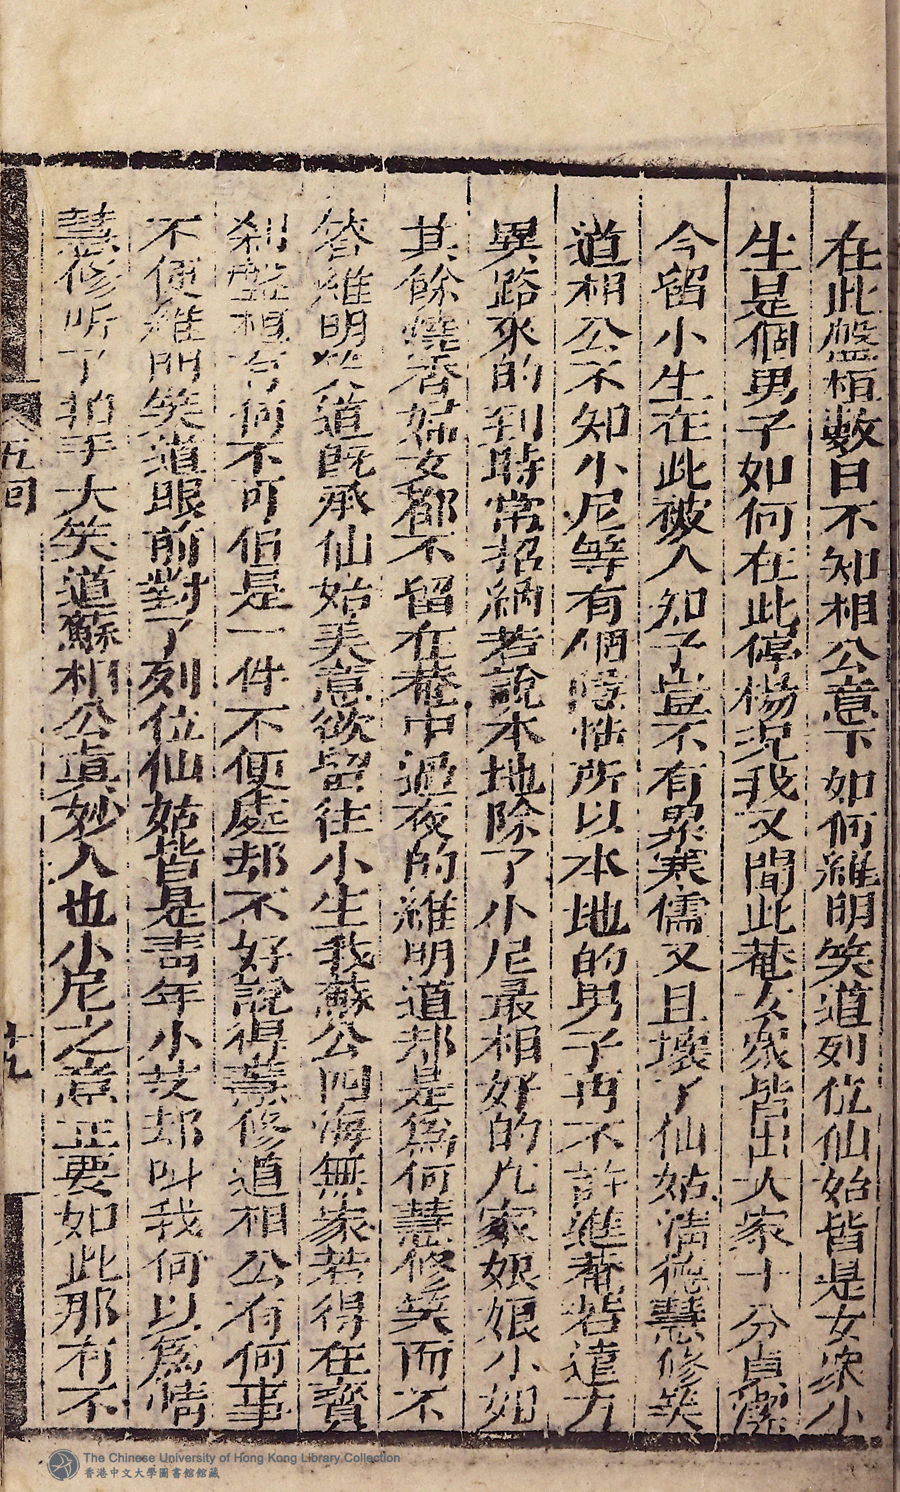 在此盤桓數日不知相公意下如何維明笑道列位仙姑皆是女衆小
生是個男子如何在此停楊况我又聞此菴女衆皆出大家十分貞潔
今留小生在此被人知了豈不有累寒儒又且壞了仙姑清德慧修笑
道相公不知小尼等有個隱情所以本地的男子再不許進菴若遠方
異路來的到時常招納若說本地除了小尼最相好的九家娘娘小如
其餘燒香婦女都不留在菴中過夜的維明道却是爲何慧修笑而不
答維明笑道旣承仙姑美意欲留往小生我蘇公四海無家若得在寳
刹盤桓有何不可但是一件不便處却不好說得慧修道相公有何事
不便維明笑道眼前對了列位仙姑皆是青年小艾却叫我何以爲情
慧修听了拍手大笑道蘇相公真妙人也小尼之意正要如此那有不
五回
十九
The Chinese University of Hong Kong Library Collection
香港中文大學圖書館館藏